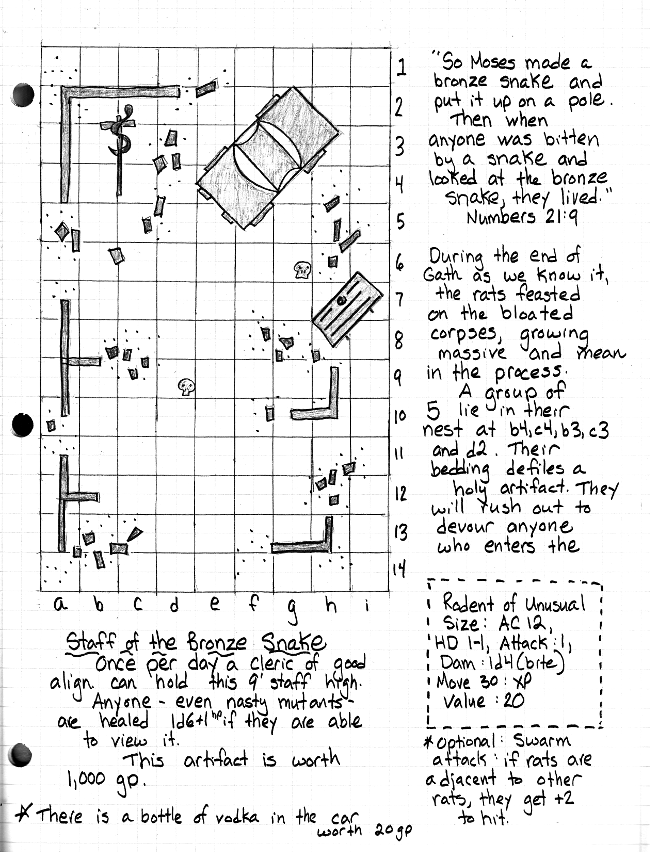 1
2
3
4
5
6
7
8
9
10
11
12
13
14
a b c d e f g h i
"So Moses made a
bronze snake and
put it up on a pole.
Then when
anyone was bitten
by a snake and
looked at the bronze
snake, they lived."
Numbers 21:9
During the end of
Gath as we know it,
the rats feasted
on the bloated
corpses, growing
massive and mean
in the process.
A group of
5 lie in their
nest at b4,c4,b3,c3
and d2. Their
bedding defiles a
holy artifact. They
will rush out to
devour anyone
who enters the
Rodent of Unusual
Size: AC 12,
HD 1-1, Attack:1,
Dam:1d4(bite)
Move 30: XP
Value: 20
*Optional: Swarm
attack: if rats are
adjacent to other
rats, they get +2
to hit.
Staff of the Bronze Snake
Once per day a cleric of good
align. can hold this 9' staff high.
Anyone - even nasty mutants -
are healed 1d6+1 hp if they are able
to view it.
This artifact is worth
1,000 gp.
* There is a bottle of vodka in the car
worth 20gp